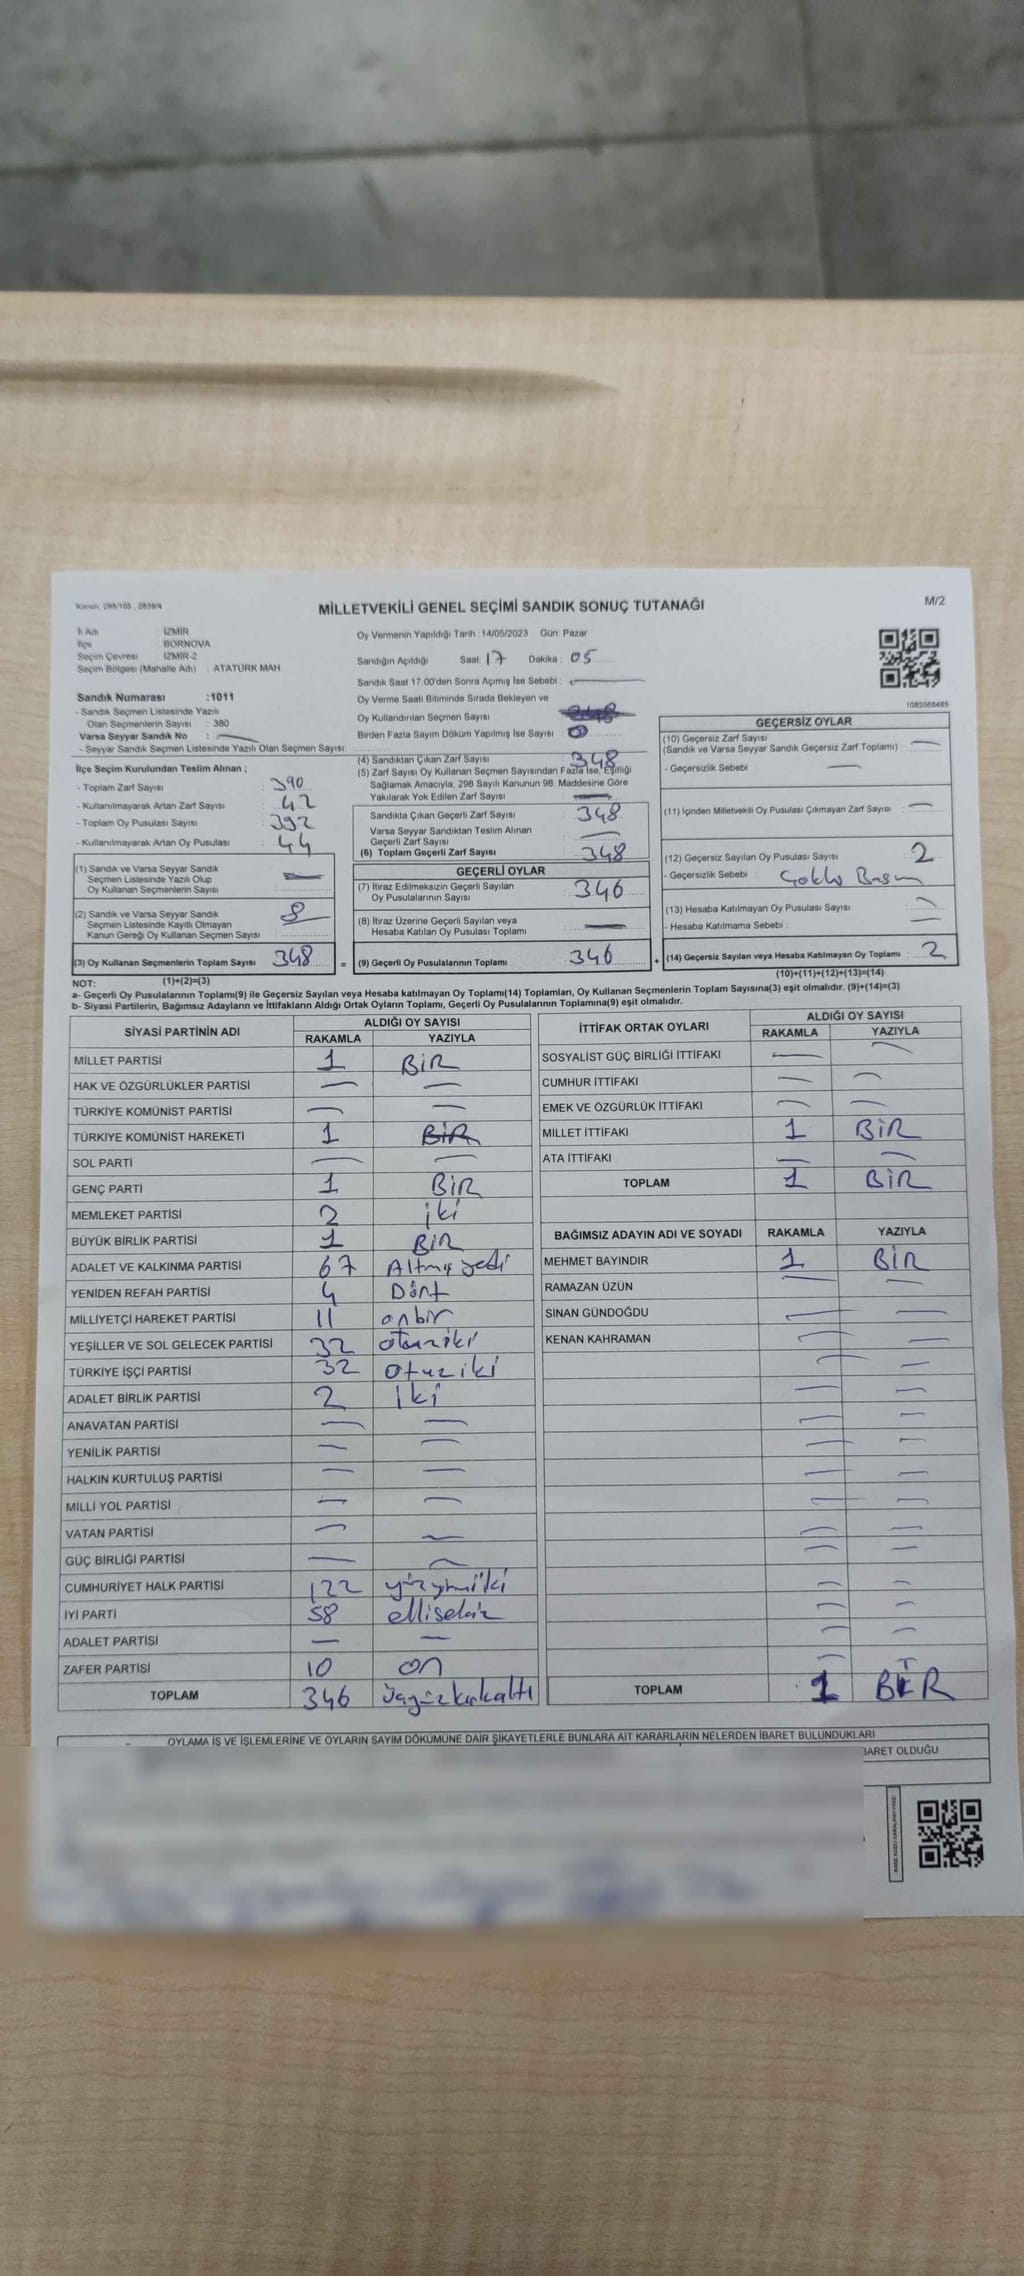 Kanun, 298/105 , 2839/4
MİLLETVEKİLİ GENEL SEÇİMİ SANDIK SONUÇ TUTANAĞI
M/2
İl Adı : İZMİR
İlçe : BORNOVA
Seçim Çevresi : İZMİR-2
Seçim Bölgesi (Mahalle Adı) : ATATÜRK MAH
Sandık Numarası :1011
- Sandık Seçmen Listesinde Yazılı
Olan Seçmenlerin Sayısı : 380
Varsa Seyyar Sandık No :
- Seyyar Sandık Seçmen Listesinde Yazılı Olan Seçmen Sayısı:
İlçe Seçim Kurulundan Teslim Alınan ;
- Toplam Zarf Sayısı : 390
- Kullanılmayarak Artan Zarf Sayısı : 42
- Toplam Oy Pusulası Sayısı : 392
- Kullanılmayarak Artan Oy Pusulası : 44
(1) Sandık ve Varsa Seyyar Sandık
Seçmen Listesinde Yazılı Olup
Oy Kullanan Seçmenlerin Sayısı :
(2) Sandık ve Varsa Seyyar Sandık
Seçmen Listesinde Kayıtlı Olmayan
Kanun Gereği Oy Kullanan Seçmen Sayısı : 8
(3) Oy Kullanan Seçmenlerin Toplam Sayısı : 348
Oy Vermenin Yapıldığı Tarih :14/05/2023 Gün: Pazar
Sandığın Açıldığı Saat: 17 Dakika : 05
Sandık Saat 17:00'den Sonra Açımış İse Sebebi :
Oy Verme Saati Bitiminde Sırada Bekleyen ve
Oy Kullandırılan Seçmen Sayısı :
Birden Fazla Sayım Döküm Yapılmış İse Sayısı :
(4) Sandıktan Çıkan Zarf Sayısı : 348
(5) Zarf Sayısı Oy Kullanan Seçmen Sayısından Fazla İse, Eşitliği
Sağlamak Amacıyla, 298 Sayılı Kanunun 98. Maddesine Göre
Yakılarak Yok Edilen Zarf Sayısı :
Sandıkta Çıkan Geçerli Zarf Sayısı : 348
Varsa Seyyar Sandıktan Teslim Alınan
Geçerli Zarf Sayısı :
(6) Toplam Geçerli Zarf Sayısı : 348
GEÇERLİ OYLAR
(7) İtiraz Edilmeksizin Geçerli Sayılan
Oy Pusulalarının Sayısı : 346
(8) İtiraz Üzerine Geçerli Sayılan veya
Hesaba Katılan Oy Pusulası Toplamı :
= (9) Geçerli Oy Pusulalarının Toplamı : 346 +
1083568485
GEÇERSİZ OYLAR
(10) Geçersiz Zarf Sayısı
(Sandık ve Varsa Seyyar Sandık Geçersiz Zarf Toplamı) :
- Geçersizlik Sebebi :
(11) İçinden Milletvekili Oy Pusulası Çıkmayan Zarf Sayısı :
(12) Geçersiz Sayılan Oy Pusulası Sayısı : 2
- Geçersizlik Sebebi :
(13) Hesaba Katılmayan Oy Pusulası Sayısı :
- Hesaba Katılmama Sebebi :
(14) Geçersiz Sayılan veya Hesaba Katılmayan Oy Toplamı : 2
NOT: (1)+(2)=(3) (10)+(11)+(12)+(13)=(14)
a- Geçerli Oy Pusulalarının Toplamı(9) ile Geçersiz Sayılan veya Hesaba katılmayan Oy Toplamı(14) Toplamları, Oy Kullanan Seçmenlerin Toplam Sayısına(3) eşit olmalıdır. (9)+(14)=(3)
b- Siyasi Partilerin, Bağımsız Adayların ve İttifakların Aldığı Ortak Oyların Toplamı, Geçerli Oy Pusulalarının Toplamına(9) eşit olmalıdır.
SİYASİ PARTİNİN ADI ALDIĞI OY SAYISI
RAKAMLA YAZIYLA
MİLLET PARTİSİ 1 BİR
HAK VE ÖZGÜRLÜKLER PARTİSİ
TÜRKİYE KOMÜNİST PARTİSİ
TÜRKİYE KOMÜNİST HAREKETİ 1 BİR
SOL PARTİ
GENÇ PARTİ 1 BİR
MEMLEKET PARTİSİ 2 iki
BÜYÜK BİRLİK PARTİSİ 1 BİR
ADALET VE KALKINMA PARTİSİ 67 Altmış yedi
YENİDEN REFAH PARTİSİ 4 Dört
MİLLİYETÇİ HAREKET PARTİSİ 11 onbir
YEŞİLLER VE SOL GELECEK PARTİSİ 32 otuziki
TÜRKİYE İŞÇİ PARTİSİ 32 otuziki
ADALET BİRLİK PARTİSİ 2 iki
ANAVATAN PARTİSİ
YENİLİK PARTİSİ
HALKIN KURTULUŞ PARTİSİ
MİLLİ YOL PARTİSİ
VATAN PARTİSİ
GÜÇ BİRLİĞİ PARTİSİ
CUMHURİYET HALK PARTİSİ 122 yüzyirmiiki
İYİ PARTİ 58 ellisekiz
ADALET PARTİSİ
ZAFER PARTİSİ 10 on
TOPLAM 346 üçyüzkırkaltı
İTTİFAK ORTAK OYLARI ALDIĞI OY SAYISI
RAKAMLA YAZIYLA
SOSYALİST GÜÇ BİRLİĞİ İTTİFAKI
CUMHUR İTTİFAKI
EMEK VE ÖZGÜRLÜK İTTİFAKI
MİLLET İTTİFAKI 1 BİR
ATA İTTİFAKI
TOPLAM 1 BİR
BAĞIMSIZ ADAYIN ADI VE SOYADI RAKAMLA YAZIYLA
MEHMET BAYINDIR 1 BİR
RAMAZAN ÜZÜN
SİNAN GÜNDOĞDU
KENAN KAHRAMAN
TOPLAM 1 BİR
OYLAMA İŞ VE İŞLEMLERİNE VE OYLARIN SAYIM DÖKÜMÜNE DAİR ŞİKAYETLERLE BUNLARA AİT KARARLARIN NELERDEN İBARET BULUNDUKLARI
BARET OLDUĞU